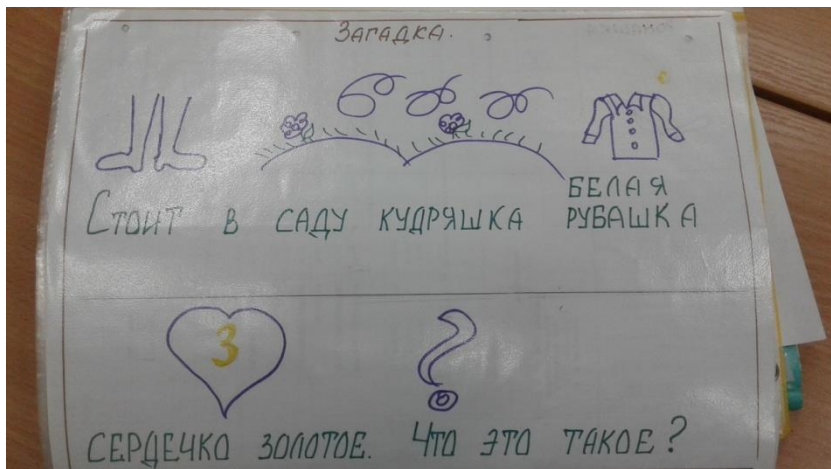 Загадка.
Стоит в саду кудряшка белая рубашка
3
сердечко золотое. Что это такое?